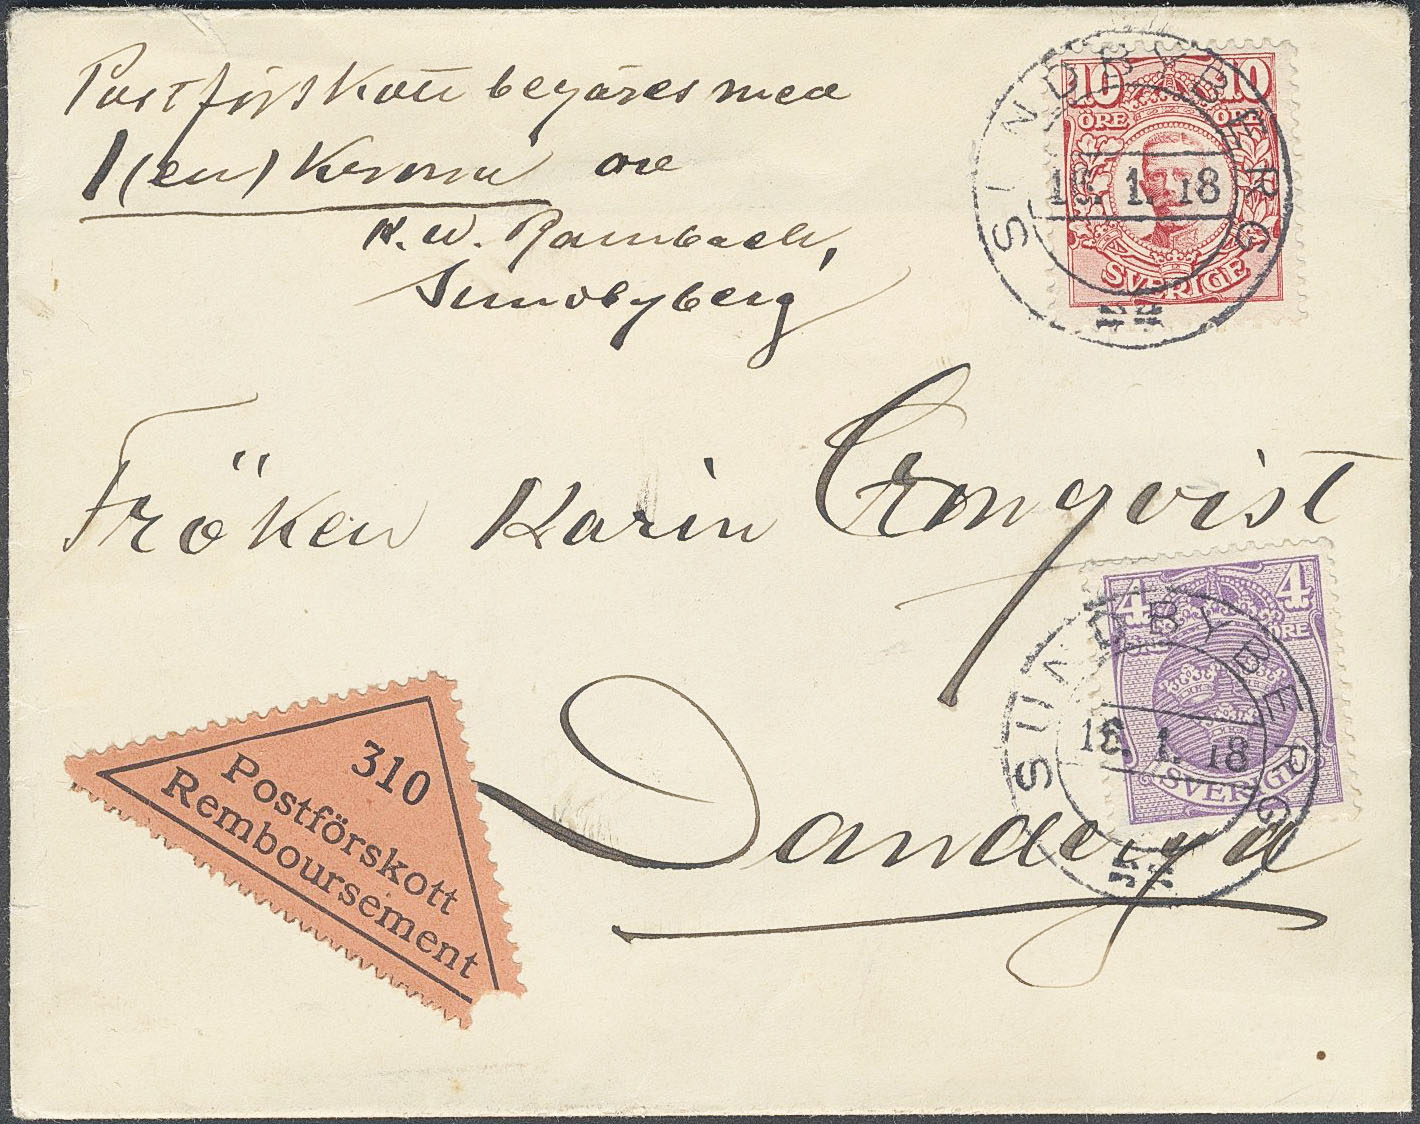 Postförskott begäres med
1 (en) Krona öre
K. W. Rambach,
Sundbyberg
10 10
ÖRE ÖRE
SVERIGE
SUNDBYBERG
1. 18
Fröken Karin Cronqvist
4 4
ÖRE ÖRE
SVERIGE
SUNDBYBERG
18. 1. 18
Danderyd
310
Postförskott
Remboursement